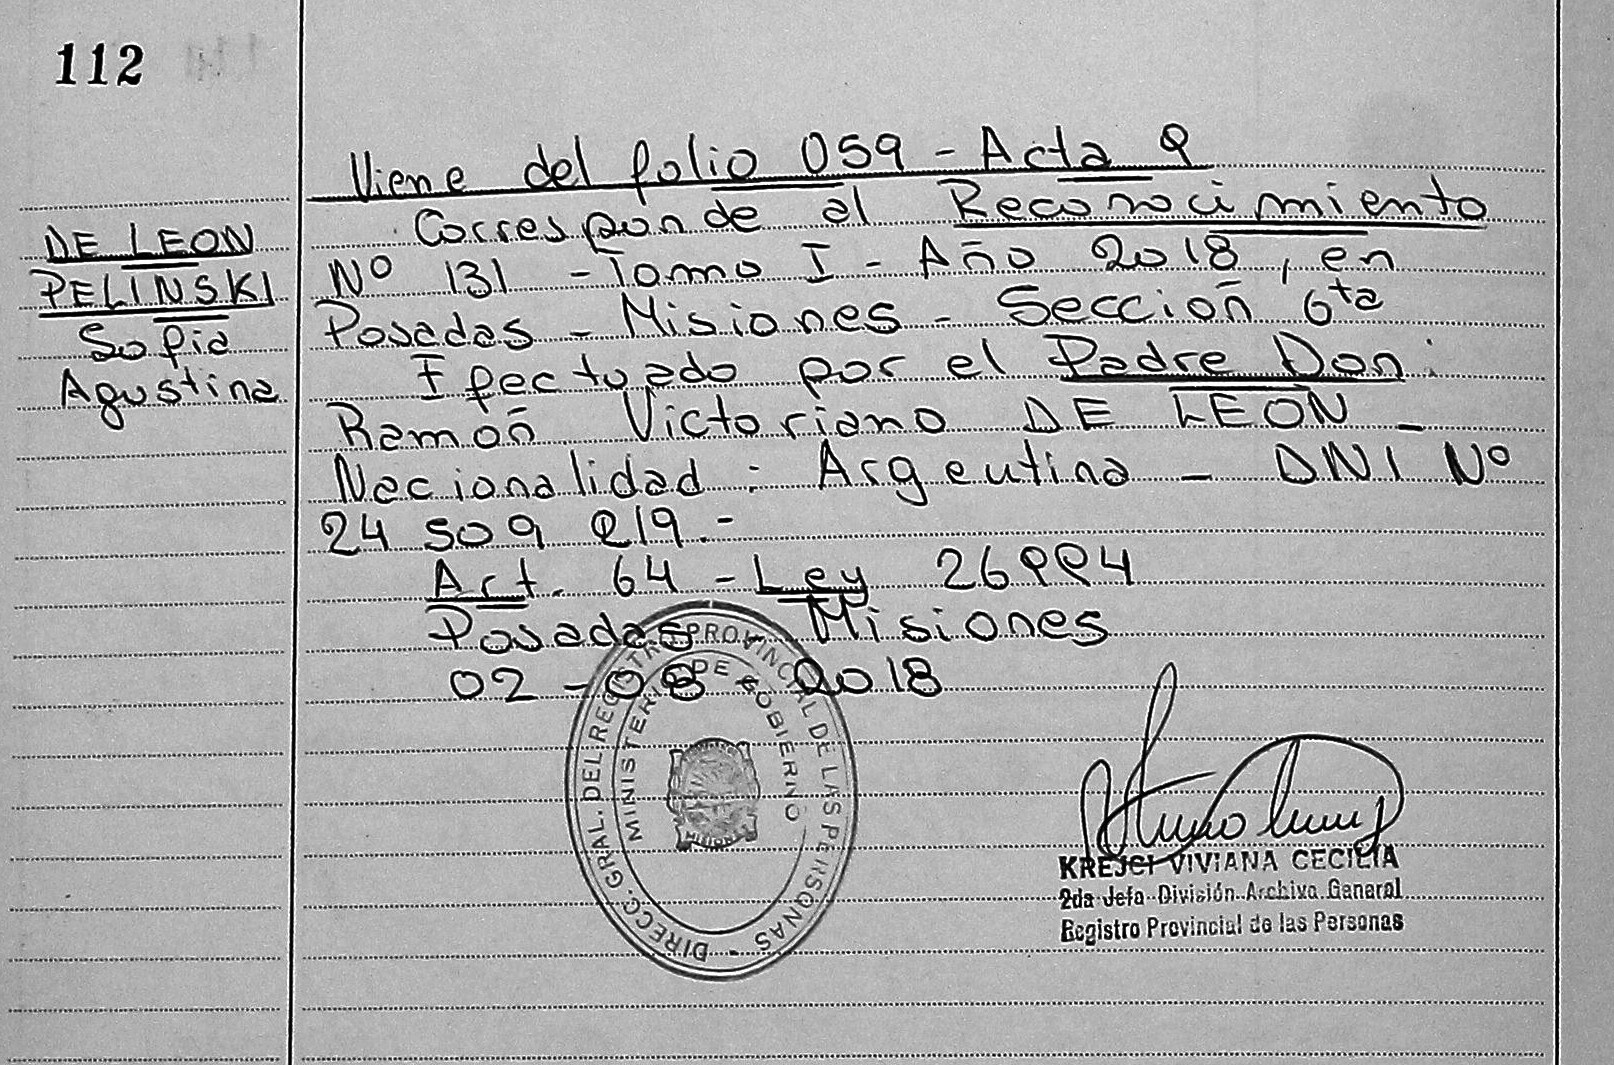 112
Viene del folio 059 - Acta 9
Corresponde al Reconocimiento
DE LEON
Nº 131 - Tomo I - Año 2018, en
PELINSKI
Posadas - Misiones - Sección 6ta
Sofia
Efectuado por el Padre Don:
Agustina
Ramón Victoriano DE LEON -
Nacionalidad: Argentina - DNI Nº
24 509 219.-
Art. 64 - Ley 26994
Posadas Misiones
02 - 08 2018
DIRECC. GRAL. DEL REGISTRO PROVINCIAL DE LAS PERSONAS -
MINISTERIO DE GOBIERNO
KREJCI VIVIANA CECILIA
2da Jefa División Archivo General
Registro Provincial de las Personas